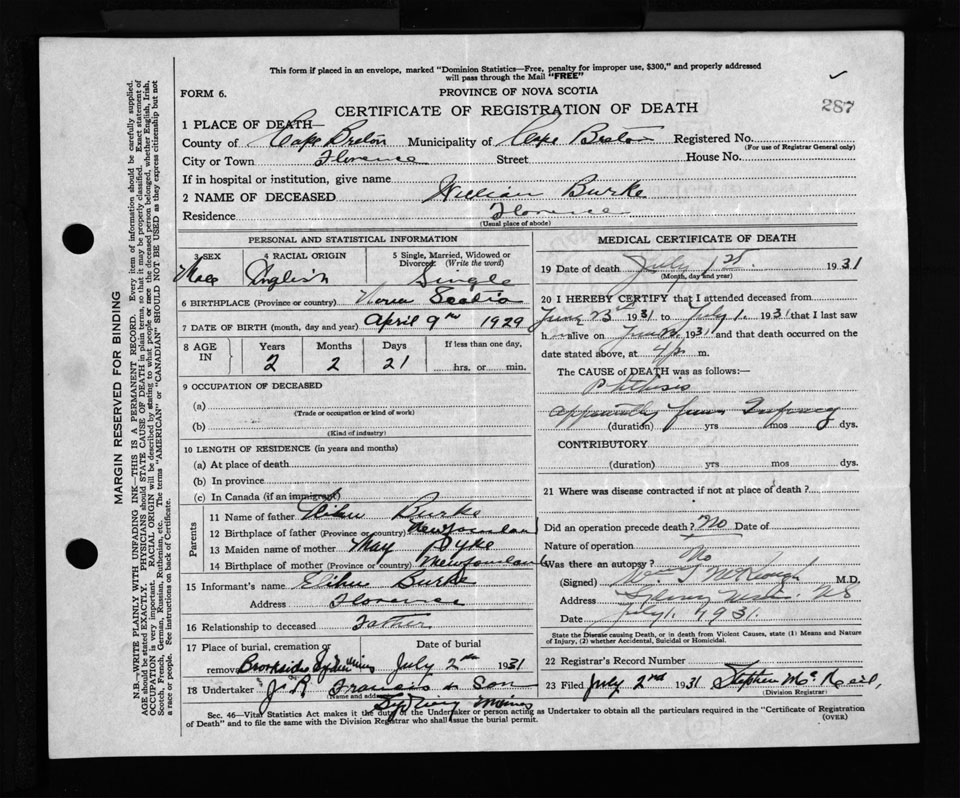 This form if placed in an envelope, marked "Dominion Statistics—Free, penalty for improper use, $300," and properly addressed
will pass through the Mail "FREE"
FORM 6.
PROVINCE OF NOVA SCOTIA
287
CERTIFICATE OF REGISTRATION OF DEATH
1 PLACE OF DEATH—
County of Cape Breton Municipality of Cape Breton Registered No.
(For use of Registrar General only)
City or Town Florence Street House No.
If in hospital or institution, give name
2 NAME OF DECEASED William Burke
Residence Florence
(Usual place of abode)
PERSONAL AND STATISTICAL INFORMATION
3 SEX 4 RACIAL ORIGIN 5 Single, Married, Widowed or
Divorced (Write the word)
Male English Single
6 BIRTHPLACE (Province or country) Nova Scotia
7 DATE OF BIRTH (month, day and year) April 9th 1929
8 AGE IN Years Months Days If less than one day,
2 2 21 hrs. or min.
9 OCCUPATION OF DECEASED
(a)
(Trade or occupation or kind of work)
(b)
(Kind of industry)
10 LENGTH OF RESIDENCE (in years and months)
(a) At place of death
(b) In province
(c) In Canada (if an immigrant)
Parents
11 Name of father Elihu Burke
12 Birthplace of father (Province or country) Newfoundland
13 Maiden name of mother May Dyke
14 Birthplace of mother (Province or country) Newfoundland
15 Informant's name Elihu Burke
Address Florence
16 Relationship to deceased Father
17 Place of burial, cremation or Date of burial
removal Brookside Sydney Mines July 2nd 1931
18 Undertaker J. R. Francis & Son
Name and address
Sydney Mines
MEDICAL CERTIFICATE OF DEATH
19 Date of death July 1st. 1931
(Month, day and year)
20 I HEREBY CERTIFY that I attended deceased from
June 1931 to July 1. 1931 that I last saw
h alive on June 1931 and that death occurred on
date stated above, at m.
The CAUSE of DEATH was as follows:—
Phthisis
apparently from Infancy
(duration) yrs mos dys.
CONTRIBUTORY
(duration) yrs mos dys.
21 Where was disease contracted if not at place of death?
Did an operation precede death? No Date of
Nature of operation
Was there an autopsy? No
(Signed) McKeough M.D.
Address Sydney Mines. NS
Date July 1. 1931.
State the Disease causing Death, or in death from Violent Causes, state (1) Means and Nature
of Injury, (2) whether Accidental, Suicidal or Homicidal.
22 Registrar's Record Number
23 Filed July 2nd 1931. Stephen McNeil,
(Division Registrar)
Sec. 46—Vital Statistics Act makes it the duty of the Undertaker or person acting as Undertaker to obtain all the particulars required in the "Certificate of Registration
of Death" and to file the same with the Division Registrar who shall issue the burial permit.
(OVER)
MARGIN RESERVED FOR BINDING
N.B.—WRITE PLAINLY WITH UNFADING INK—THIS IS A PERMANENT RECORD. Every item of information should be carefully supplied.
AGE should be stated EXACTLY. PHYSICIANS should STATE CAUSE OF DEATH in plain terms, so that it may be properly classified. Exact statement of
OCCUPATION is very important. RACIAL ORIGIN will be described by stating to what people or race the deceased person belonged, whether English, Irish,
Scotch, French, German, Russian, Ruthenian, etc. The terms "AMERICAN" or "CANADIAN" SHOULD NOT BE USED as they express citizenship but not
a race or people. See instructions on back of Certificate.